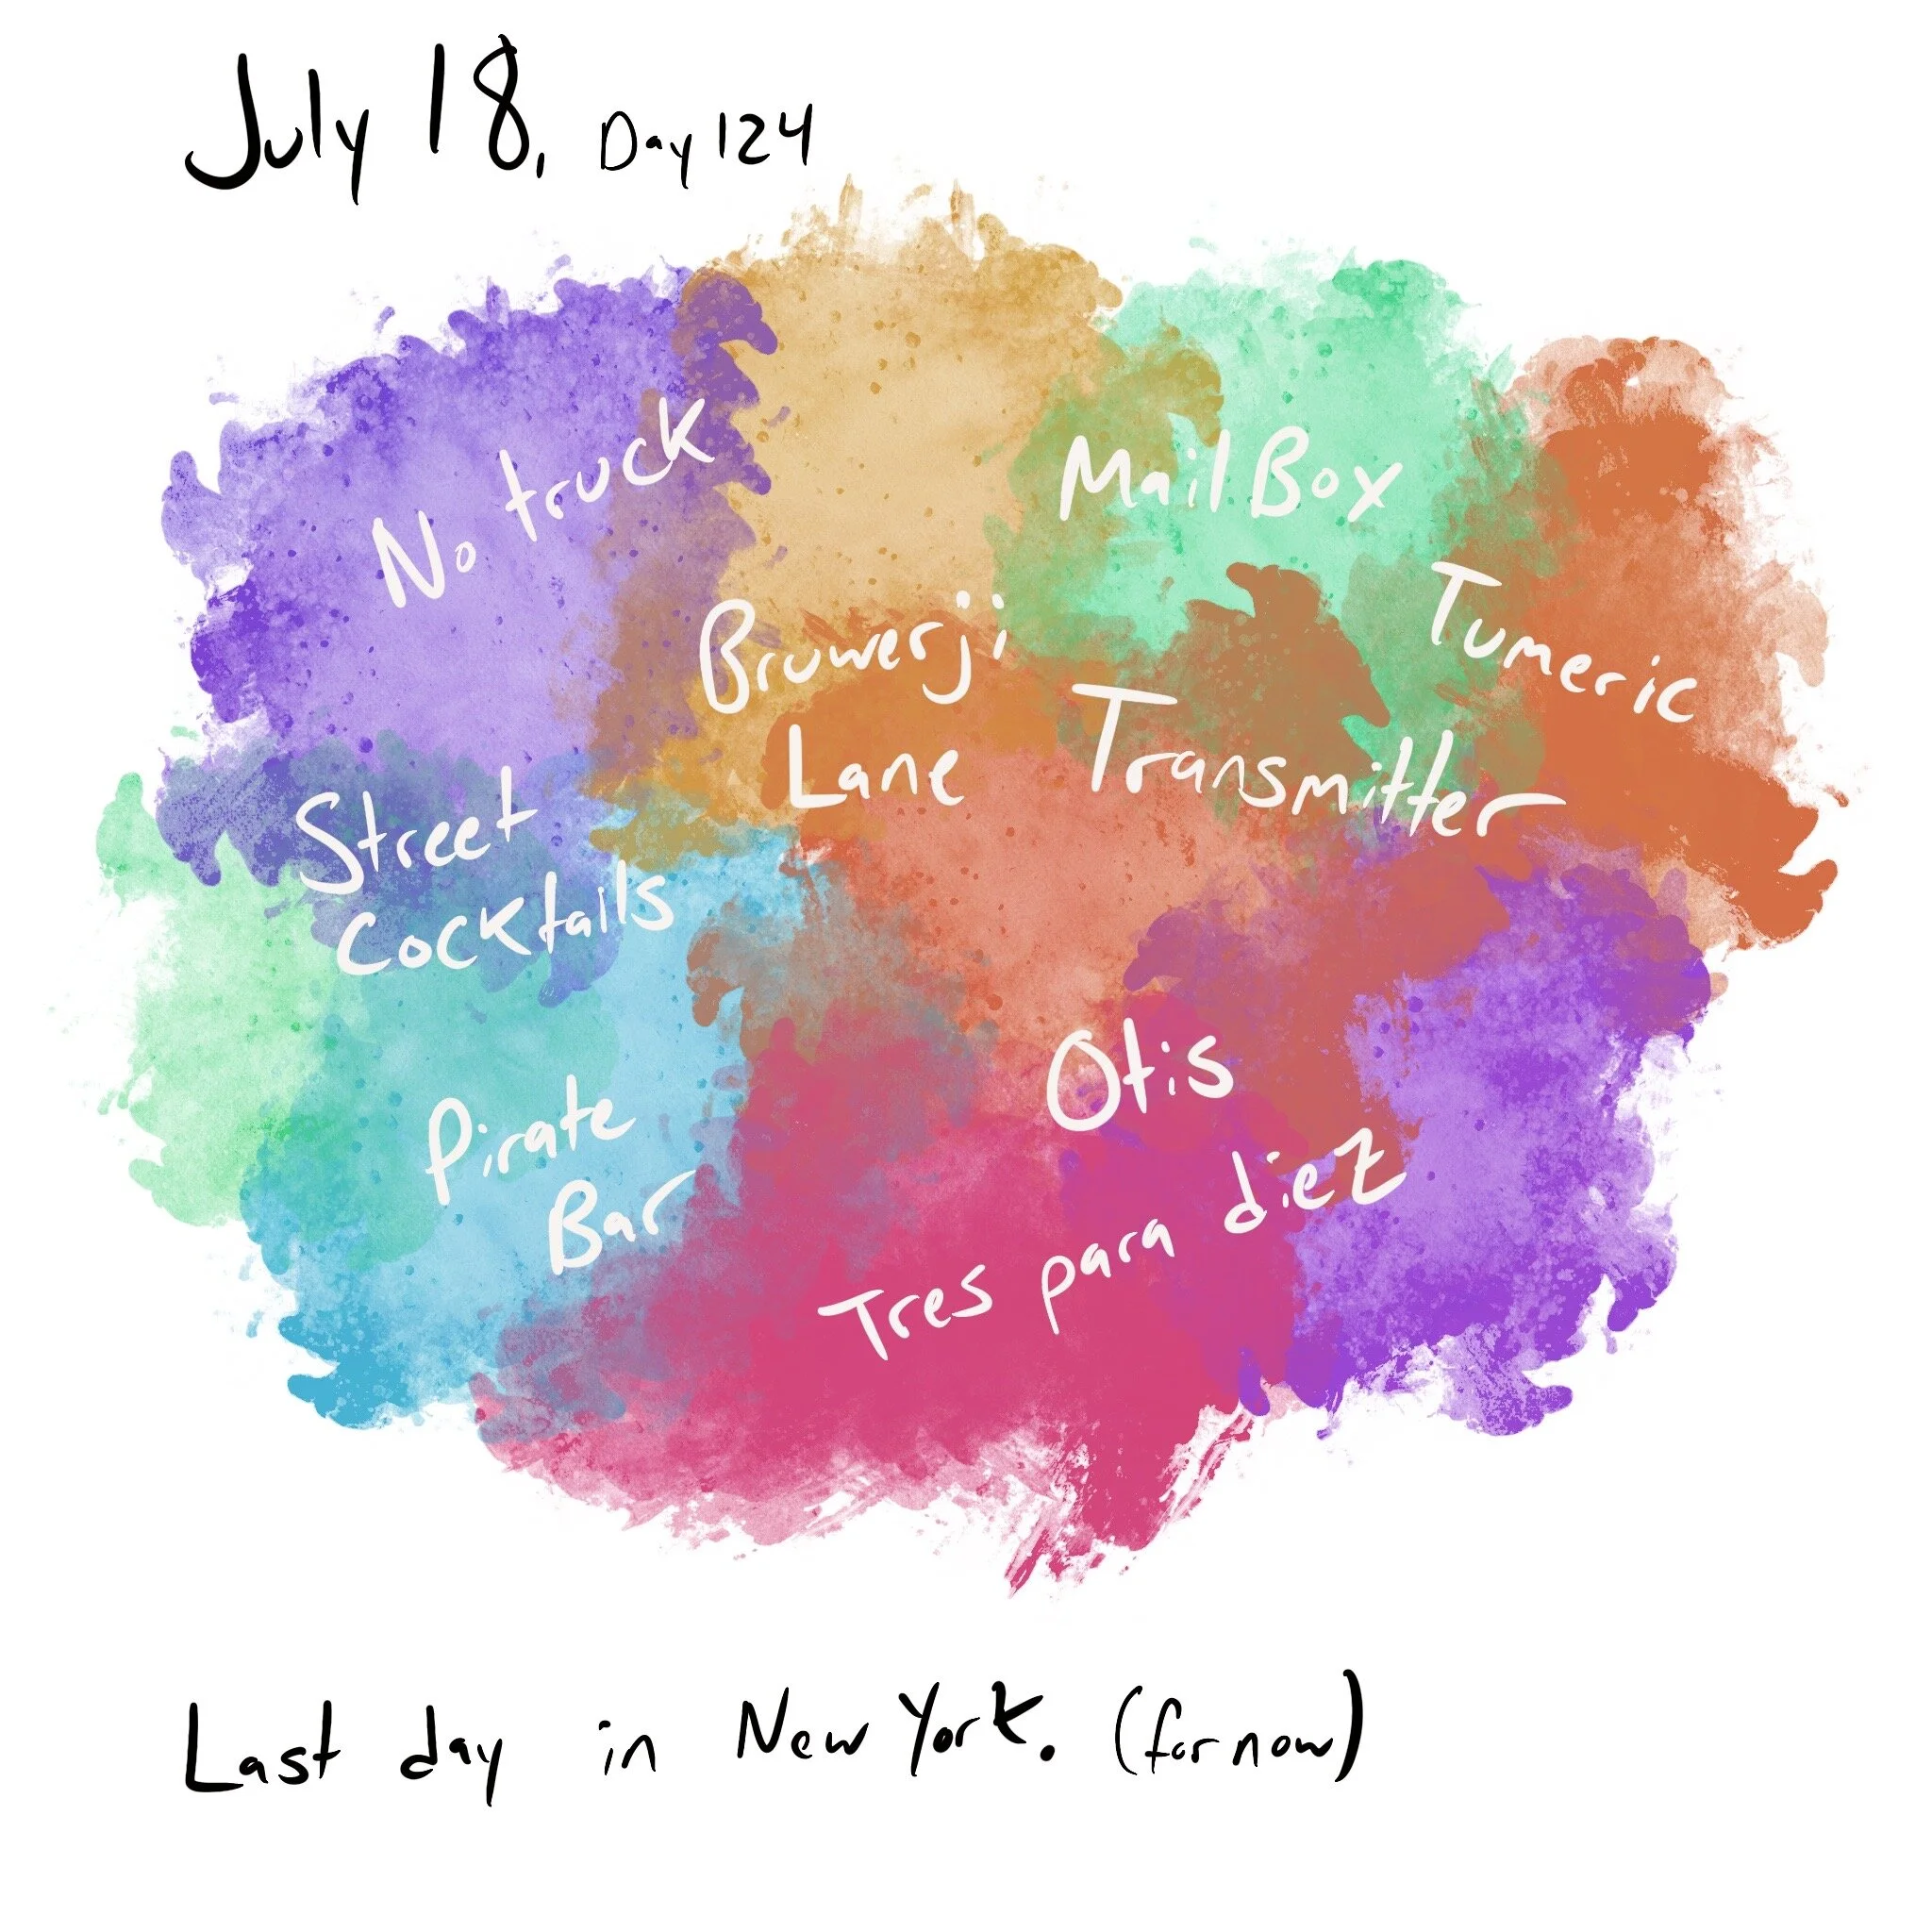 July 18, Day 124
No truck
MailBox
Bruwerji
Lane
Tumeric
Transmitter
Street
Cocktails
Pirate
Bar
Otis
Tres para diez
Last day in New York. (for now)